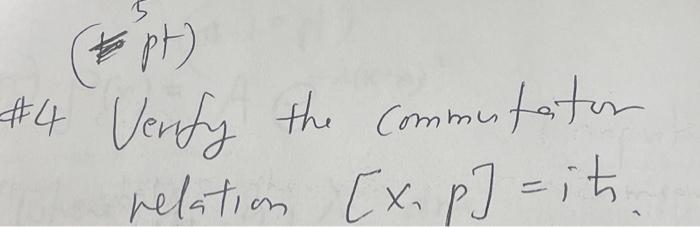 (5 pt)
#4 Verify the commutator
relation [x, p] = iħ.